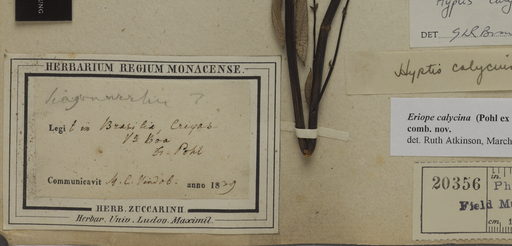 Hyptis caly
DET
HERBARIUM REGIUM MONACENSE.
Hyptis calycina
Legi t in Brasilia,
Eriope calycina (Pohl ex
comb. nov.
det. Ruth Atkinson, March
Pohl
Communicavit M. C. Vindob. anno 1839
HERB. ZUCCARINII
Herbar. Univ. Ludov. Maximil.
20356
in.
Ph
Field M
cm 1